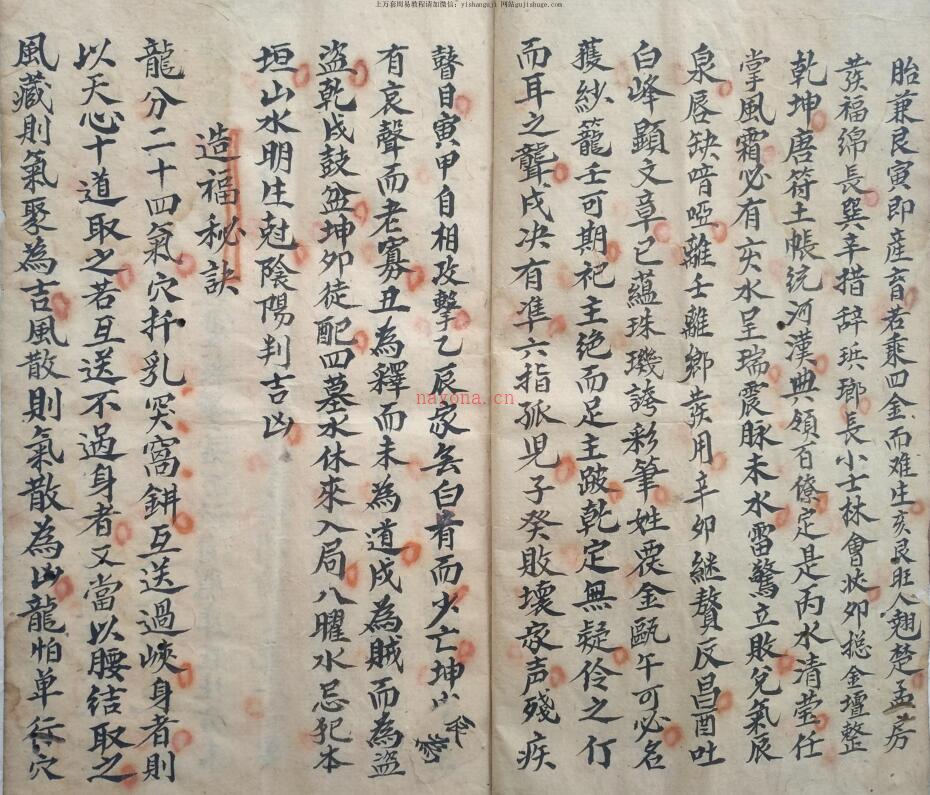 上万套周易教程请加微信：yishanguji 网站gujishuge.com
胎兼艮寅即產育若乘四金而难生亥艮旺人翹楚孟房
發福綿長巽辛措辞琅長小士林會狄卯搃金壇整
乾坤唐符土帳統河漢典領百僚定是丙水清莹任
掌風霜必有亥水呈瑞震脉未水雷驚立敗兌氣辰
泉唇缺喑啞離壬離鄉發用辛卯継贅反昌酉吐
白峰顯文章巳蘊珠璣誇彩筆姓覆金甌午可必名
護紗籠壬可期祀主绝而足主跛乾定無疑伶之仃
而耳之聾戌决有準六指孤児子癸敗壞家声殘疾
瞽目寅甲自相攻擊乙辰家無白首而少亡坤
有哀聲而老寡丑為釋而未為道戌為賊而為盜
盜乾戌鼓盆坤卯徒配四墓水休來入局八曜水忌犯本
垣山水明生尅陰陽判吉凶
造福秘訣
龍分二十四氣穴扦乳突窩鉗互送過峽身者則
以天心十道取之若互送不過身者又當以腰结取之
風藏則氣聚為吉風散則氣散為凶龍怕单行穴
nayona.cn